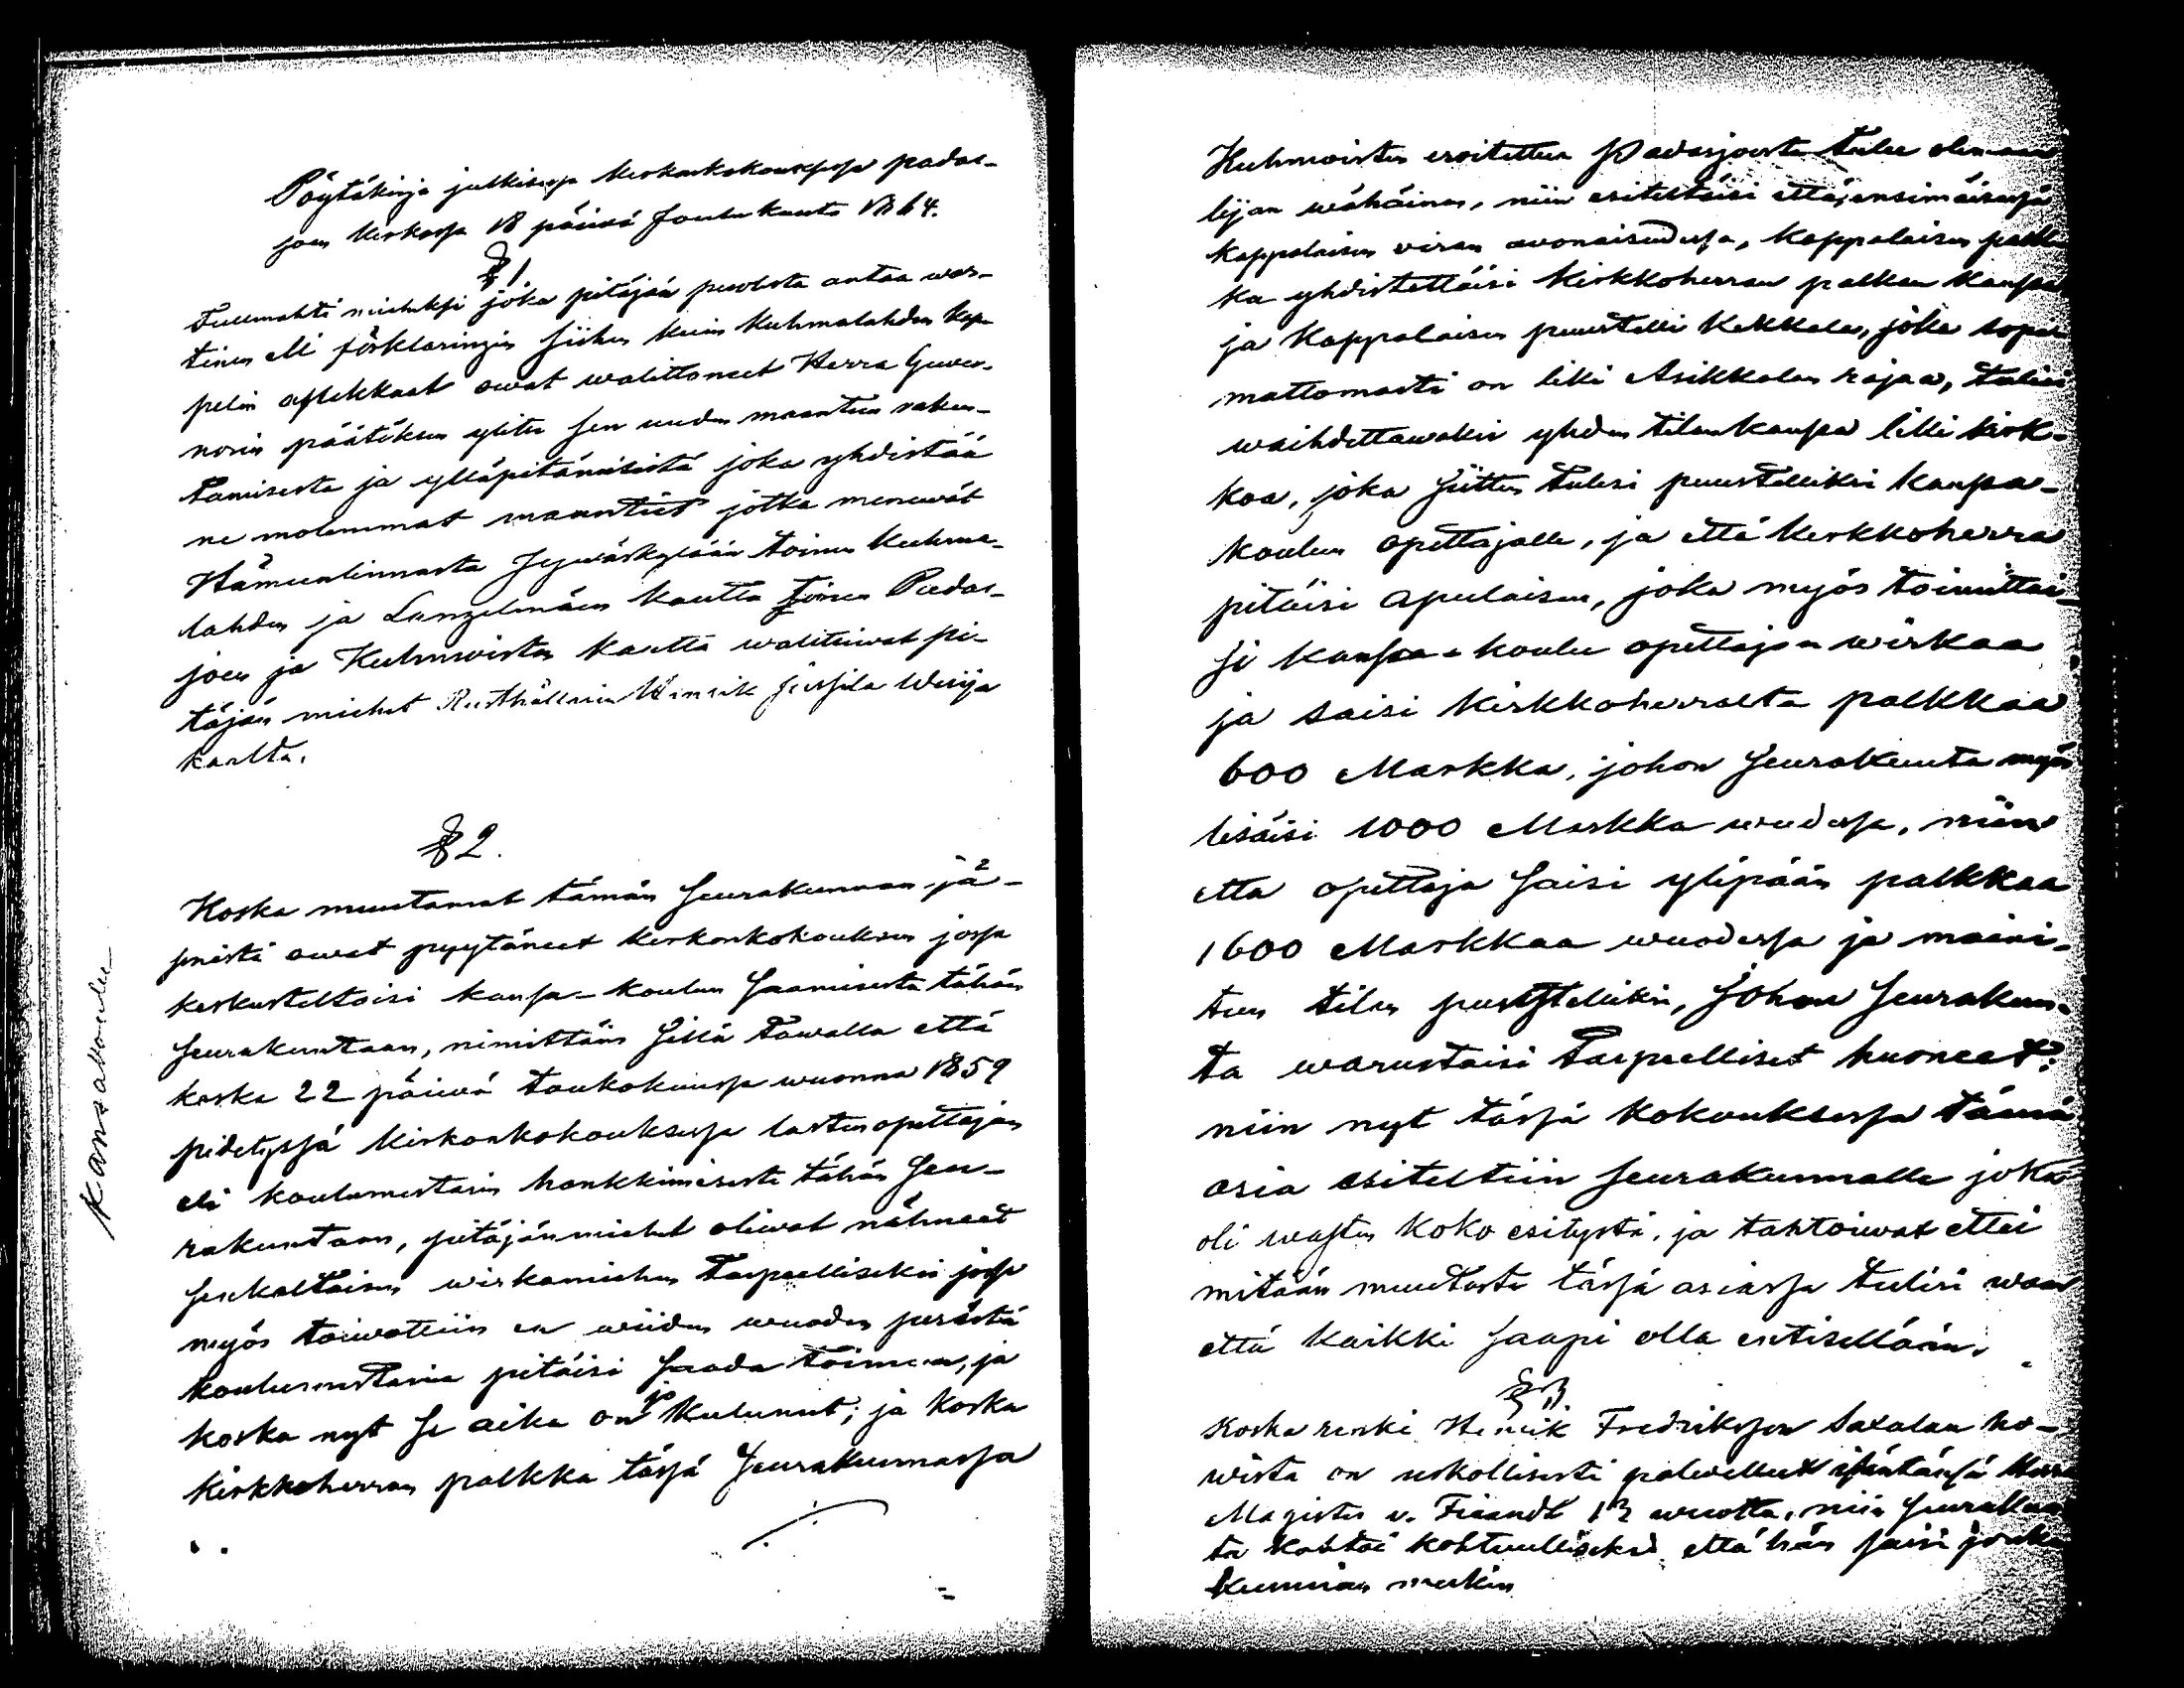 Pöytäkirja julkisessa kirkonkokouksessa padas-
joen kirkossa 18 päiwä Joulukuuta 1864.
§ 1.
Fullmahti mieheksi joka pitäjän puolesta antaa was-
tinen eli förklaringin siihen kuin Kuhmalahden kap-
pelin asukkaat owat walittaneet Herra Guwer-
norin päätöksen ylite sen uuden maantien raken-
tamisesta ja ylläpitämisestä joka yhdistää
ne molemmat maantiet jotka menewät
Hämeenlinnasta Jywäskylään toinen Kuhma-
lahden ja Längelmäen kautta toinen Padas-
joen ja Kuhmoisten kautta walitsiwat pi-
täjän miehet Rusthållarin Henrik Jussila Wesija
kaulta.
§ 2.
Koska muutamat tämän Seurakunnan jä-
senistä owat pyytäneet kirkonkokouksen jossa
keskusteltaisi kansa-koulun saamisesta tähän
Seurakuntaan, nimittäin sillä tawalla että
koska 22 päiwä toukokuussa wuonna 1859
pidetyssä kirkonkokouksessa lasten opettajan
eli koulumestarin hankkimisesta tähän Seu-
rakuntaan, pitäjänmiehet oliwat nähneet
senkaltaisen wirkamiehen tarpeelliseksi jossa
myös toiwottiin en wiiden wuoden perästä
koulumestaria pitäisi saada toimeen, ja
koska nyt se aika on jo kulunut; ja koska
kirkkoherran palkka tässä Seurakunnassa
Kansakoulu
Kuhmoisten eroitettua Padasjoesta tulee oleman
lijan wähäinen, niin esiteltäisi että, ensimäisessä
kappalaisen viran avonaisuudessa, kappalaisen palk-
ka yhdistettäisi kirkkoherran palkan kanssa
ja Kappalaisen puustelli Kekkola, joka sopi-
mattomasti on liki Asikkalan rajaa, tulisi
waihdettawaksi yhden tilan kanssa liki kirk-
koa, joka siitten tulisi puustelliksi kansa-
koulun opettajalle, ja että kirkkoherra
pitäisi apulaisen, joka myös toimittai-
si kansa-koulu opettajan wirkaa
ja saisi kirkkoherralta palkkaa
600 Markka, johon Seurakunta myös
lisäisi 1000 Markka wuodessa, niin
etta opettaja saisi ylipään palkkaa
1600 Markkaa wuodessa ja maini-
tun tilan puustelliksi, johon Seurakun-
ta warustaisi tarpeelliset huoneet;
niin nyt tässä kokouksessa tämä
asia esiteltiin Seurakunnalle joka
oli wasten koko esitystä, ja tahtoiwat ettei
mitään muutosta tässä asiassa tulisi waan
että kaikki saapi olla entisellään.
§ 3
Koska renki Henrik Fredriksson Saxalan ho-
wista on uskollisesti palwellut isäntäänsä Herra
Magister v. Fieandt 13 wuotta, niin Seurakun-
ta kahtoi kohtuulliseksi että hän saisi jonkun
kunnian merkin